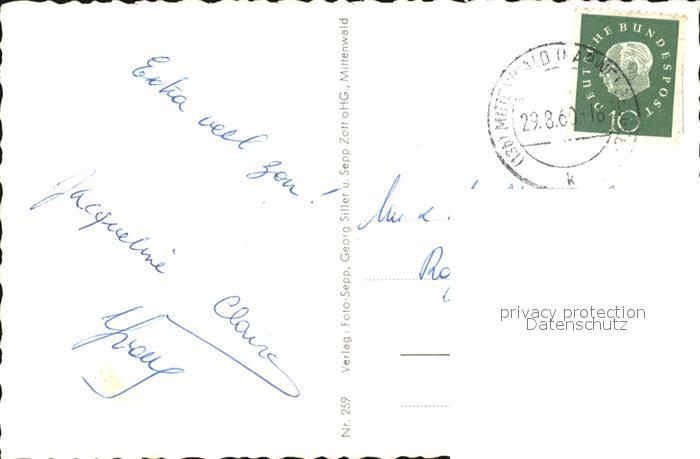 Extra veel zon!
Jacqueline
Claire
Verlag: Foto-Sepp, Georg Siller u. Sepp Zott oHG., Mittenwald
Nr. 259
DEUTSCHE BUNDESPOST
10
(13b) MITTENWALD
29.8.60-18
k
privacy protection
Datenschutz